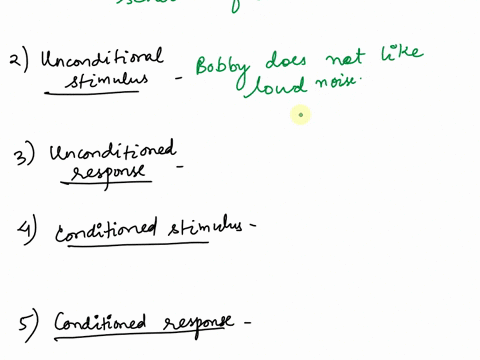 2) Unconditional
stimulus - Bobby does not like
loud noise.
3) Unconditioned
response -
4) Conditioned stimulus -
5) Conditioned response -